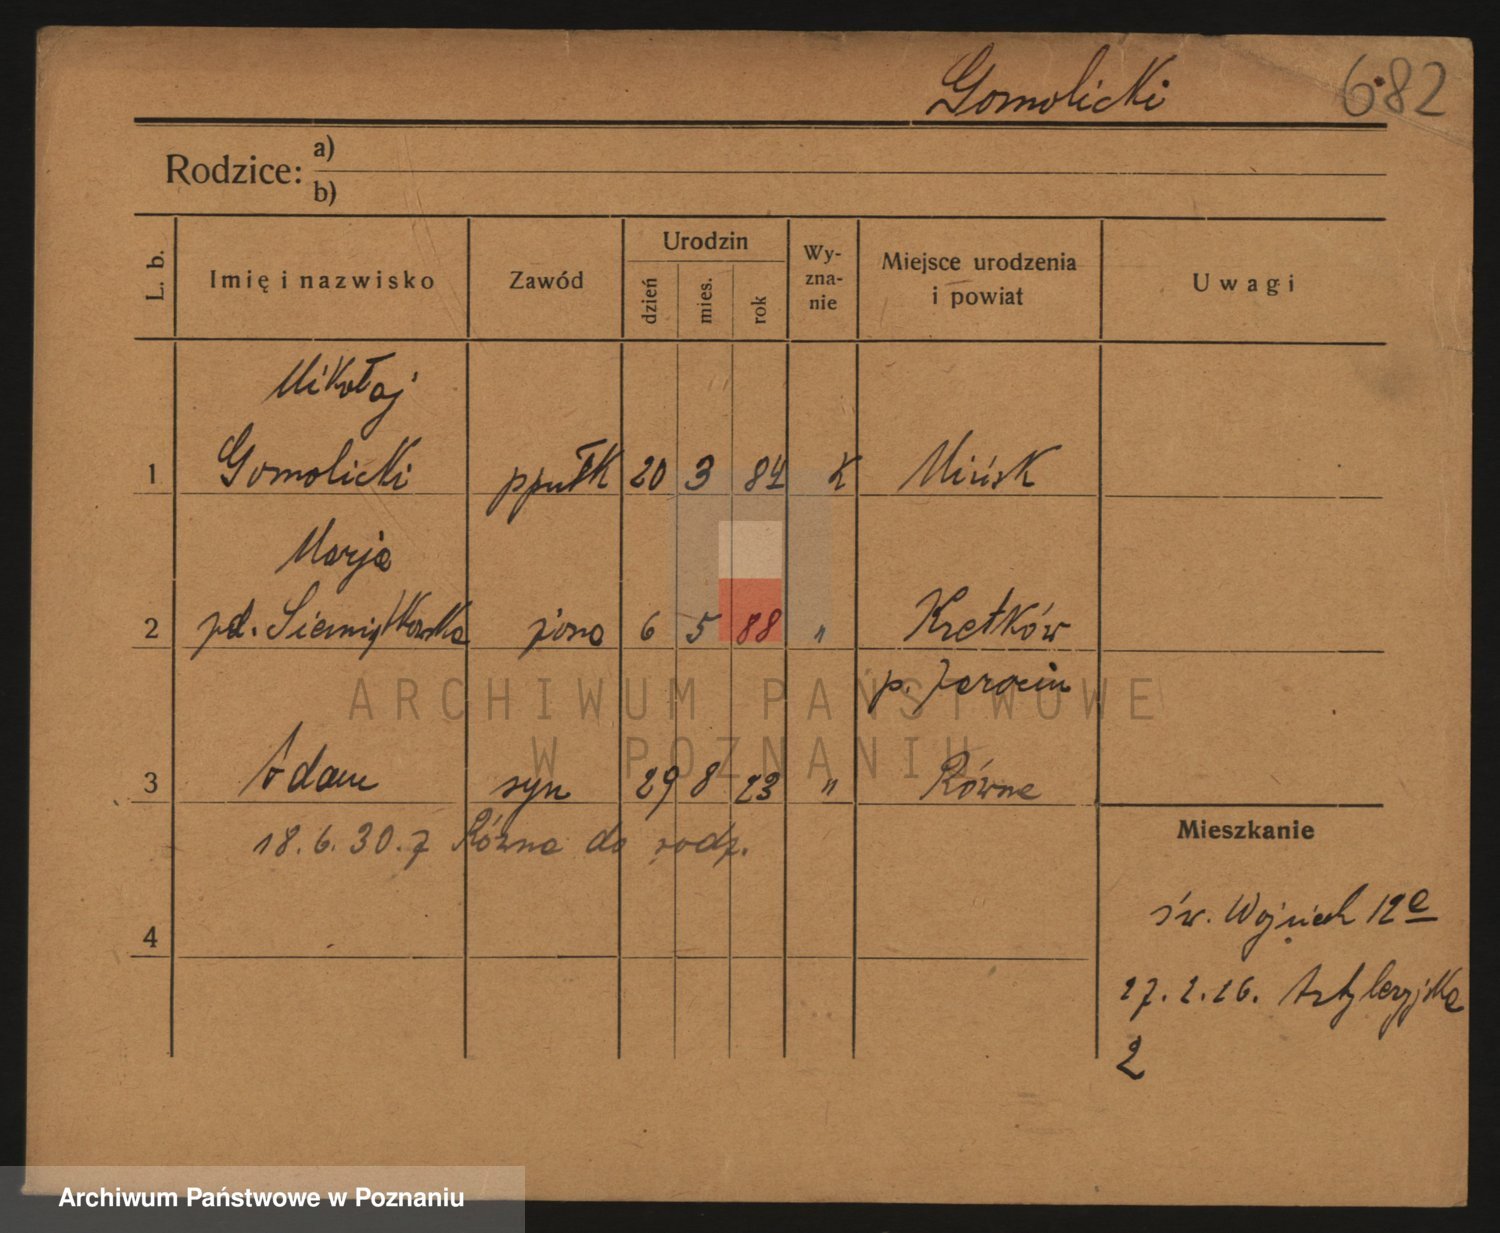 Gomolicki 682
Rodzice: a)
b)
L. b. Imię i nazwisko Zawód Urodzin dzień mies. rok Wy-zna-nie Miejsce urodzenia i powiat Uwagi
Mikołaj
1 Gomolicki ppułk 20 3 84 K Mińsk
Marja
2 pd. Siemiątkowska żona 6 5 88 " Kretków
p. Jarocin
ARCHIWUM PAŃSTWOWE
W POZNANIU
3 Adam syn 29 8 23 " Równe
18.6.30. z Równe do rodz.
Mieszkanie
4
św. Wojciech 12e
27.2.26. Artyleryjska
2
Archiwum Państwowe w Poznaniu